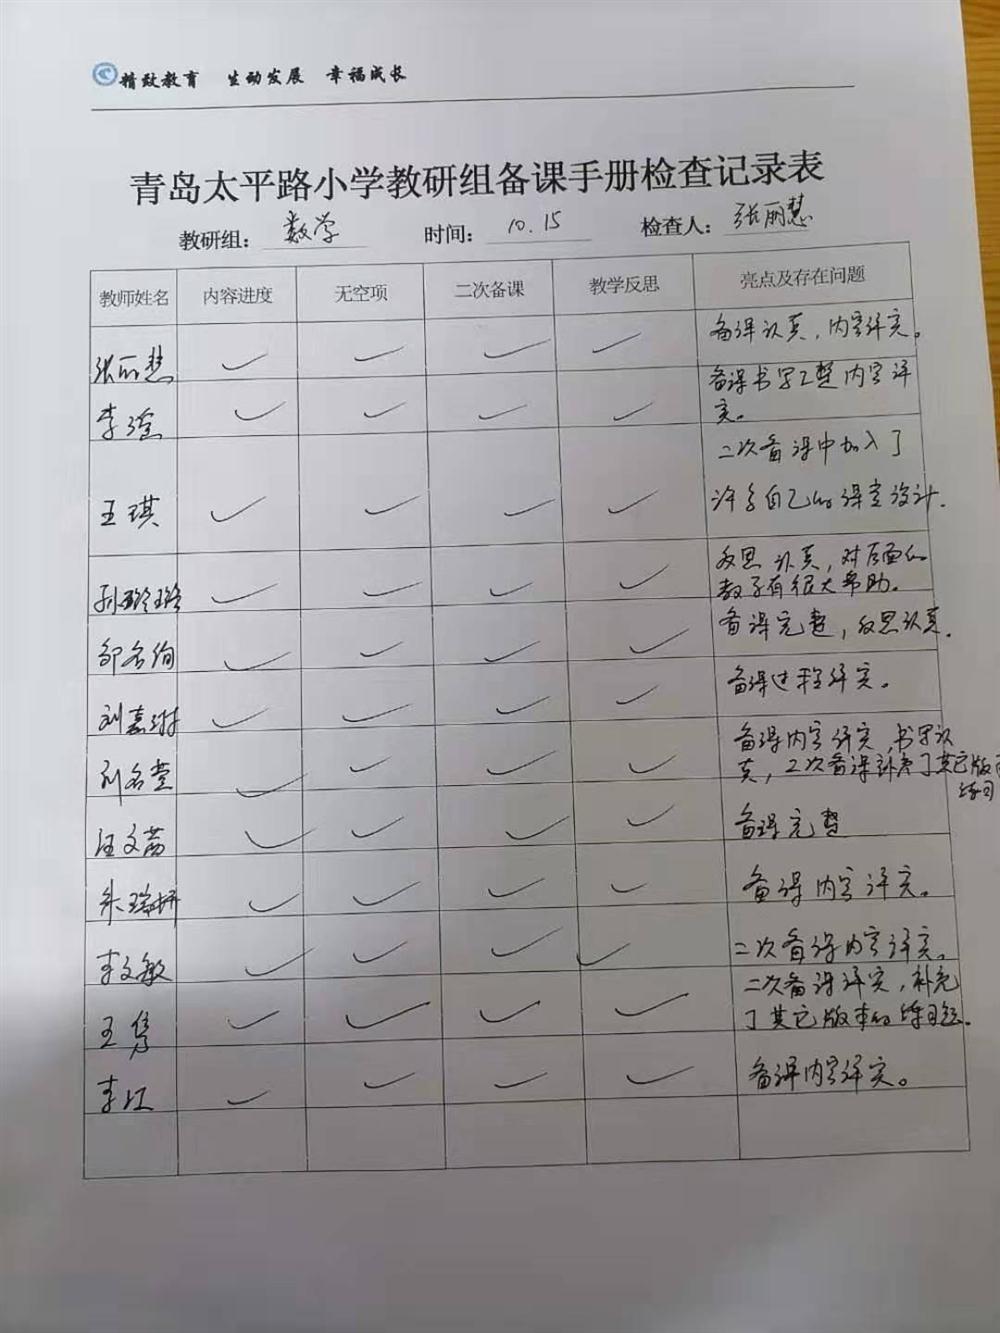 精致教育 生动发展 幸福成长
青岛太平路小学教研组备课手册检查记录表
教研组： 数学 时间： 10.15 检查人： 张丽慧
教师姓名 内容进度 无空项 二次备课 教学反思 亮点及存在问题
张丽慧 ✓ ✓ ✓ ✓ 备课认真，内容详实。
李滢 ✓ ✓ ✓ ✓ 备课书写工整内容详
实。
王琪 ✓ ✓ ✓ ✓ 二次备课中加入了
许多自己的课堂设计.
孙璐璐 ✓ ✓ ✓ ✓ 反思认真，对后面的
教学有很大帮助。
邹名绚 ✓ ✓ ✓ ✓ 备课完整，反思认真.
刘嘉琳 ✓ ✓ ✓ ✓ 备课过程详实。
刘名堂 ✓ ✓ ✓ ✓ 备课内容详实,书写认
真，二次备课补充了其它版本
练习
汪文茜 ✓ ✓ ✓ ✓ 备课完整
朱瑞妍 ✓ ✓ ✓ ✓ 备课内容详实。
李文敏 ✓ ✓ ✓ ✓ 二次备课内容详实。
王隽 ✓ ✓ ✓ ✓ 二次备课详实，补充
了其它版本的练习题.
李红 ✓ ✓ ✓ ✓ 备课内容详实。